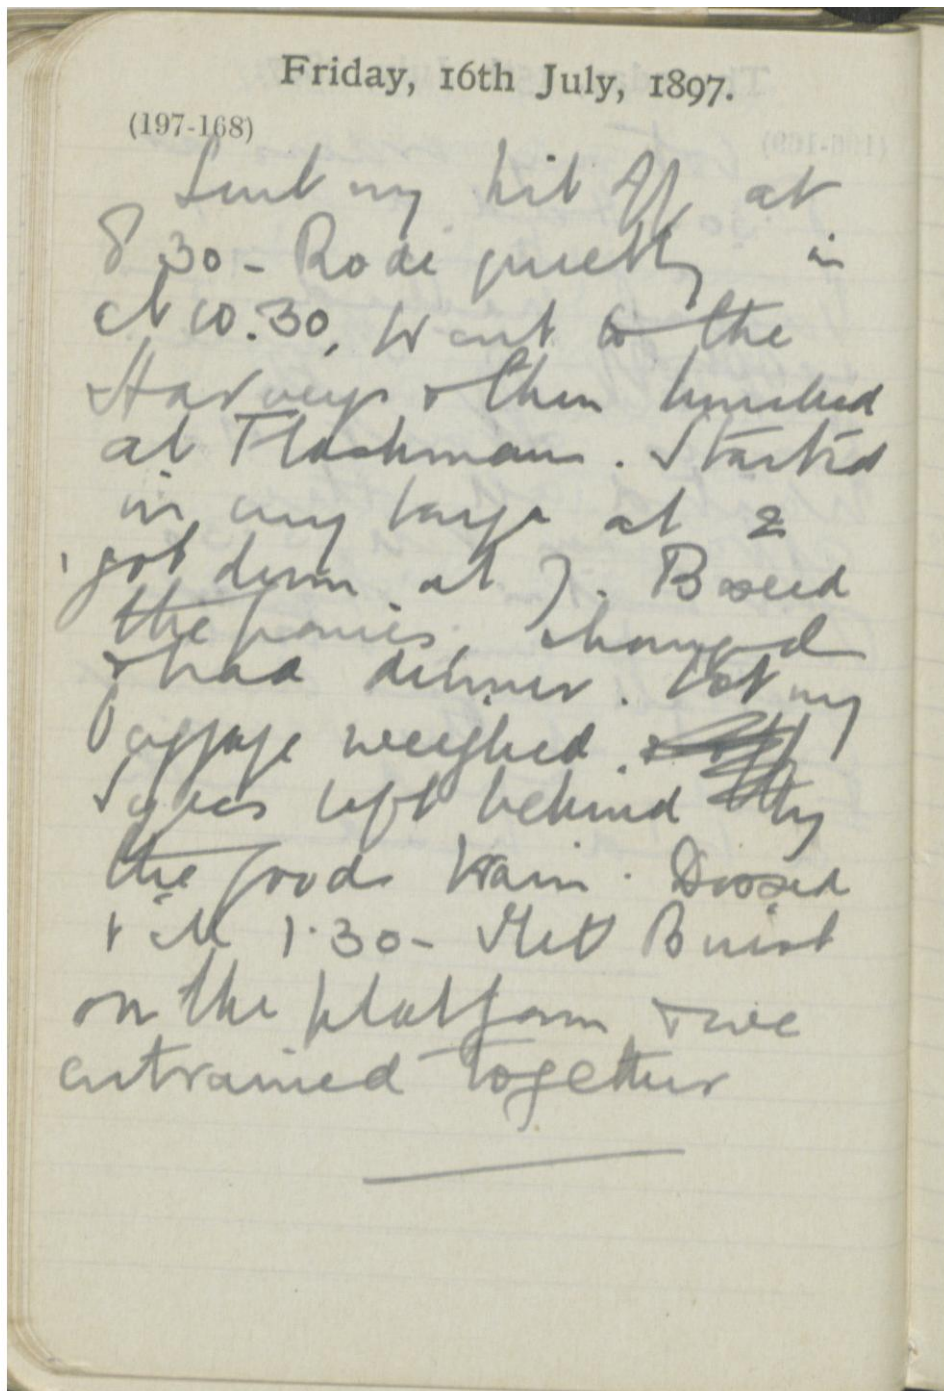 Friday, 16th July, 1897.
(197-168)
Sent my kit off at
8.30 - Rode quietly in
at 10.30, went to the
Harveys & then lunched
at Flashmans. Started
in my tonga at 2
got down at 7. Boxed
the ponies, changed
& had dinner. Got my
baggage weighed.
Syces left behind by
the goods train. Dozed
till 1.30 - Met Buist
on the platform & we
entrained together